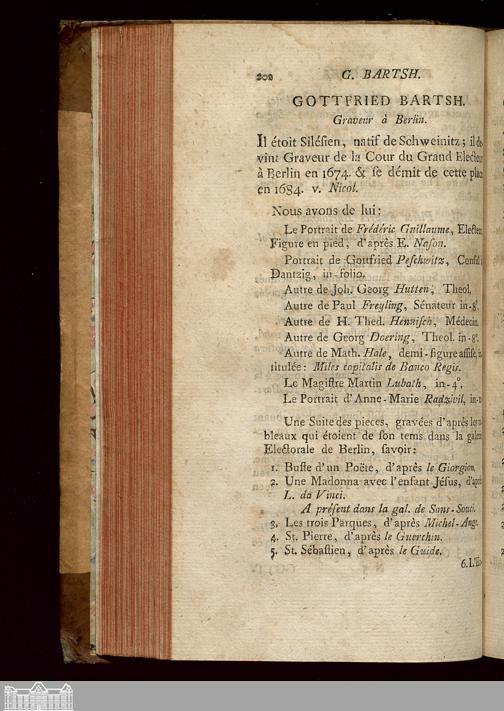 202 G. BARTSH.
GOTTFRIED BARTSH.
Graveur à Berlin.
Il étoit Siléſien, natif de Schweinitz; il de
vint Graveur de la Cour du Grand Electeur
à Berlin en 1674. & ſe démit de cette place
en 1684. v. Nicol.
Nous avons de lui:
Le Portrait de Frédéric Guillaume, Electeur
Figure en pied, d'après E. Naſon.
Portrait de Gottfried Peſchwitz, Conſul
Dantzig, in-folio.
Autre de Joh. Georg Hutten, Theol.
Autre de Paul Freyling, Sénateur in-8°.
Autre de H. Thed. Henniſch, Médecin.
Autre de Georg Doering, Theol. in-8°.
Autre de Math. Hale, demi-figure aſſiſe, in
titulée: Miles capitalis de Banco Regis.
Le Magiſtre Martin Lubath, in-4°.
Le Portrait d'Anne-Marie Radzivil, in-
Une Suite des pieces, gravées d'après les ta
bleaux qui étoient de ſon tems dans la galerie
Electorale de Berlin, ſavoir:
1. Buſte d'un Poëte, d'après le Giorgion.
2. Une Madonna avec l'enfant Jéſus, d'après
L. da Vinci.
A préſent dans la gal. de Sans-Souci.
3. Les trois Parques, d'après Michel-Ange.
4. St. Pierre, d'après le Guerchin.
5. St. Sébaſtien, d'après le Guide.